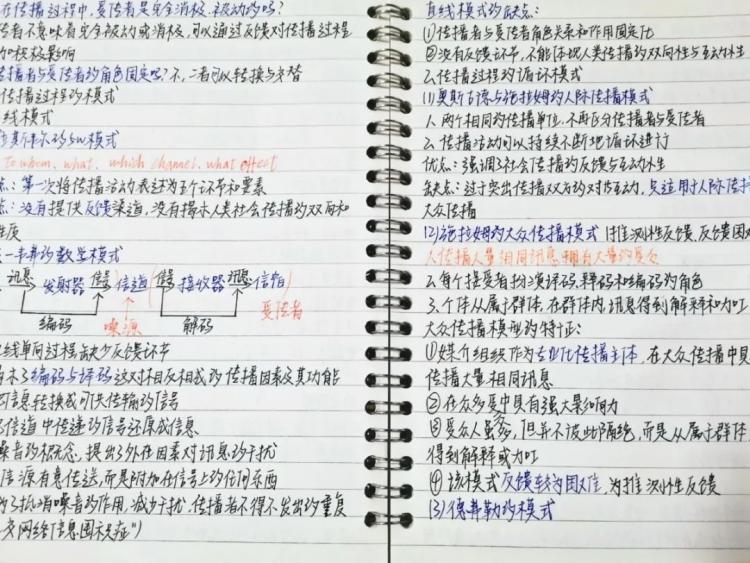 在传播过程中,受传者是完全消极、被动的吗?
传者不意味着完全被动或消极,可以通过反馈对传播过程
加积极影响
传播者与受传者的角色固定吗?不,二者可以转换与交替
传播过程的模式
线模式
斯韦尔的5W模式
To whom、what、which channel、what effect
点:第一次将传播活动表述为5个环节和要素
点:没有提供反馈渠道,没有揭示人类社会传播的双向和
性质
一韦弗的数学模式
讯息 发射器 信号 信道 信号 接收器 讯息 信宿
编码 噪源 解码 受传者
线单向过程缺少反馈环节
示了编码与译码这对相反相成的传播因素及其功能
信息转换成可供传输的信号
信道中传递的信号还原成信息
噪音的概念,提出了外在因素对讯息的干扰
信源有意传送而是附加在信号上的任何东西
为了抵消噪音的作用,减少干扰,传播者不得不发出的重复
网络信息围观症")
直线模式的缺点:
①传播者与受传者角色关系和作用固定化
②没有反馈环节,不能体现人类传播的双向性与互动性
2、传播过程的循环模式
(1)奥斯古德与施拉姆的人际传播模式
1、两个相同的传播单位,不再区分传播者与受传者
2、传播活动可以持续不断地循环进行
优点:强调了社会传播的反馈与互动性
缺点:过于突出传播双方的对等互动,只适用于人际传播
大众传播
(2)施拉姆的大众传播模式 1推测性反馈,反馈困难
传播大量相同讯息 拥有大量的受众
2、每个接受者扮演译码、释码和编码的角色
3、个体从属于群体,在群体内讯息得到解释和加工
大众传播模型的特征:
①媒介组织作为专业化传播主体,在大众传播中具
传播大量相同讯息
②在众多受众中具有强大影响力
③受众人虽多,但并不彼此隔绝,而是从属于群体
得到解释或加工
④该模式反馈较为困难,为推测性反馈
(3)德弗勒的模式